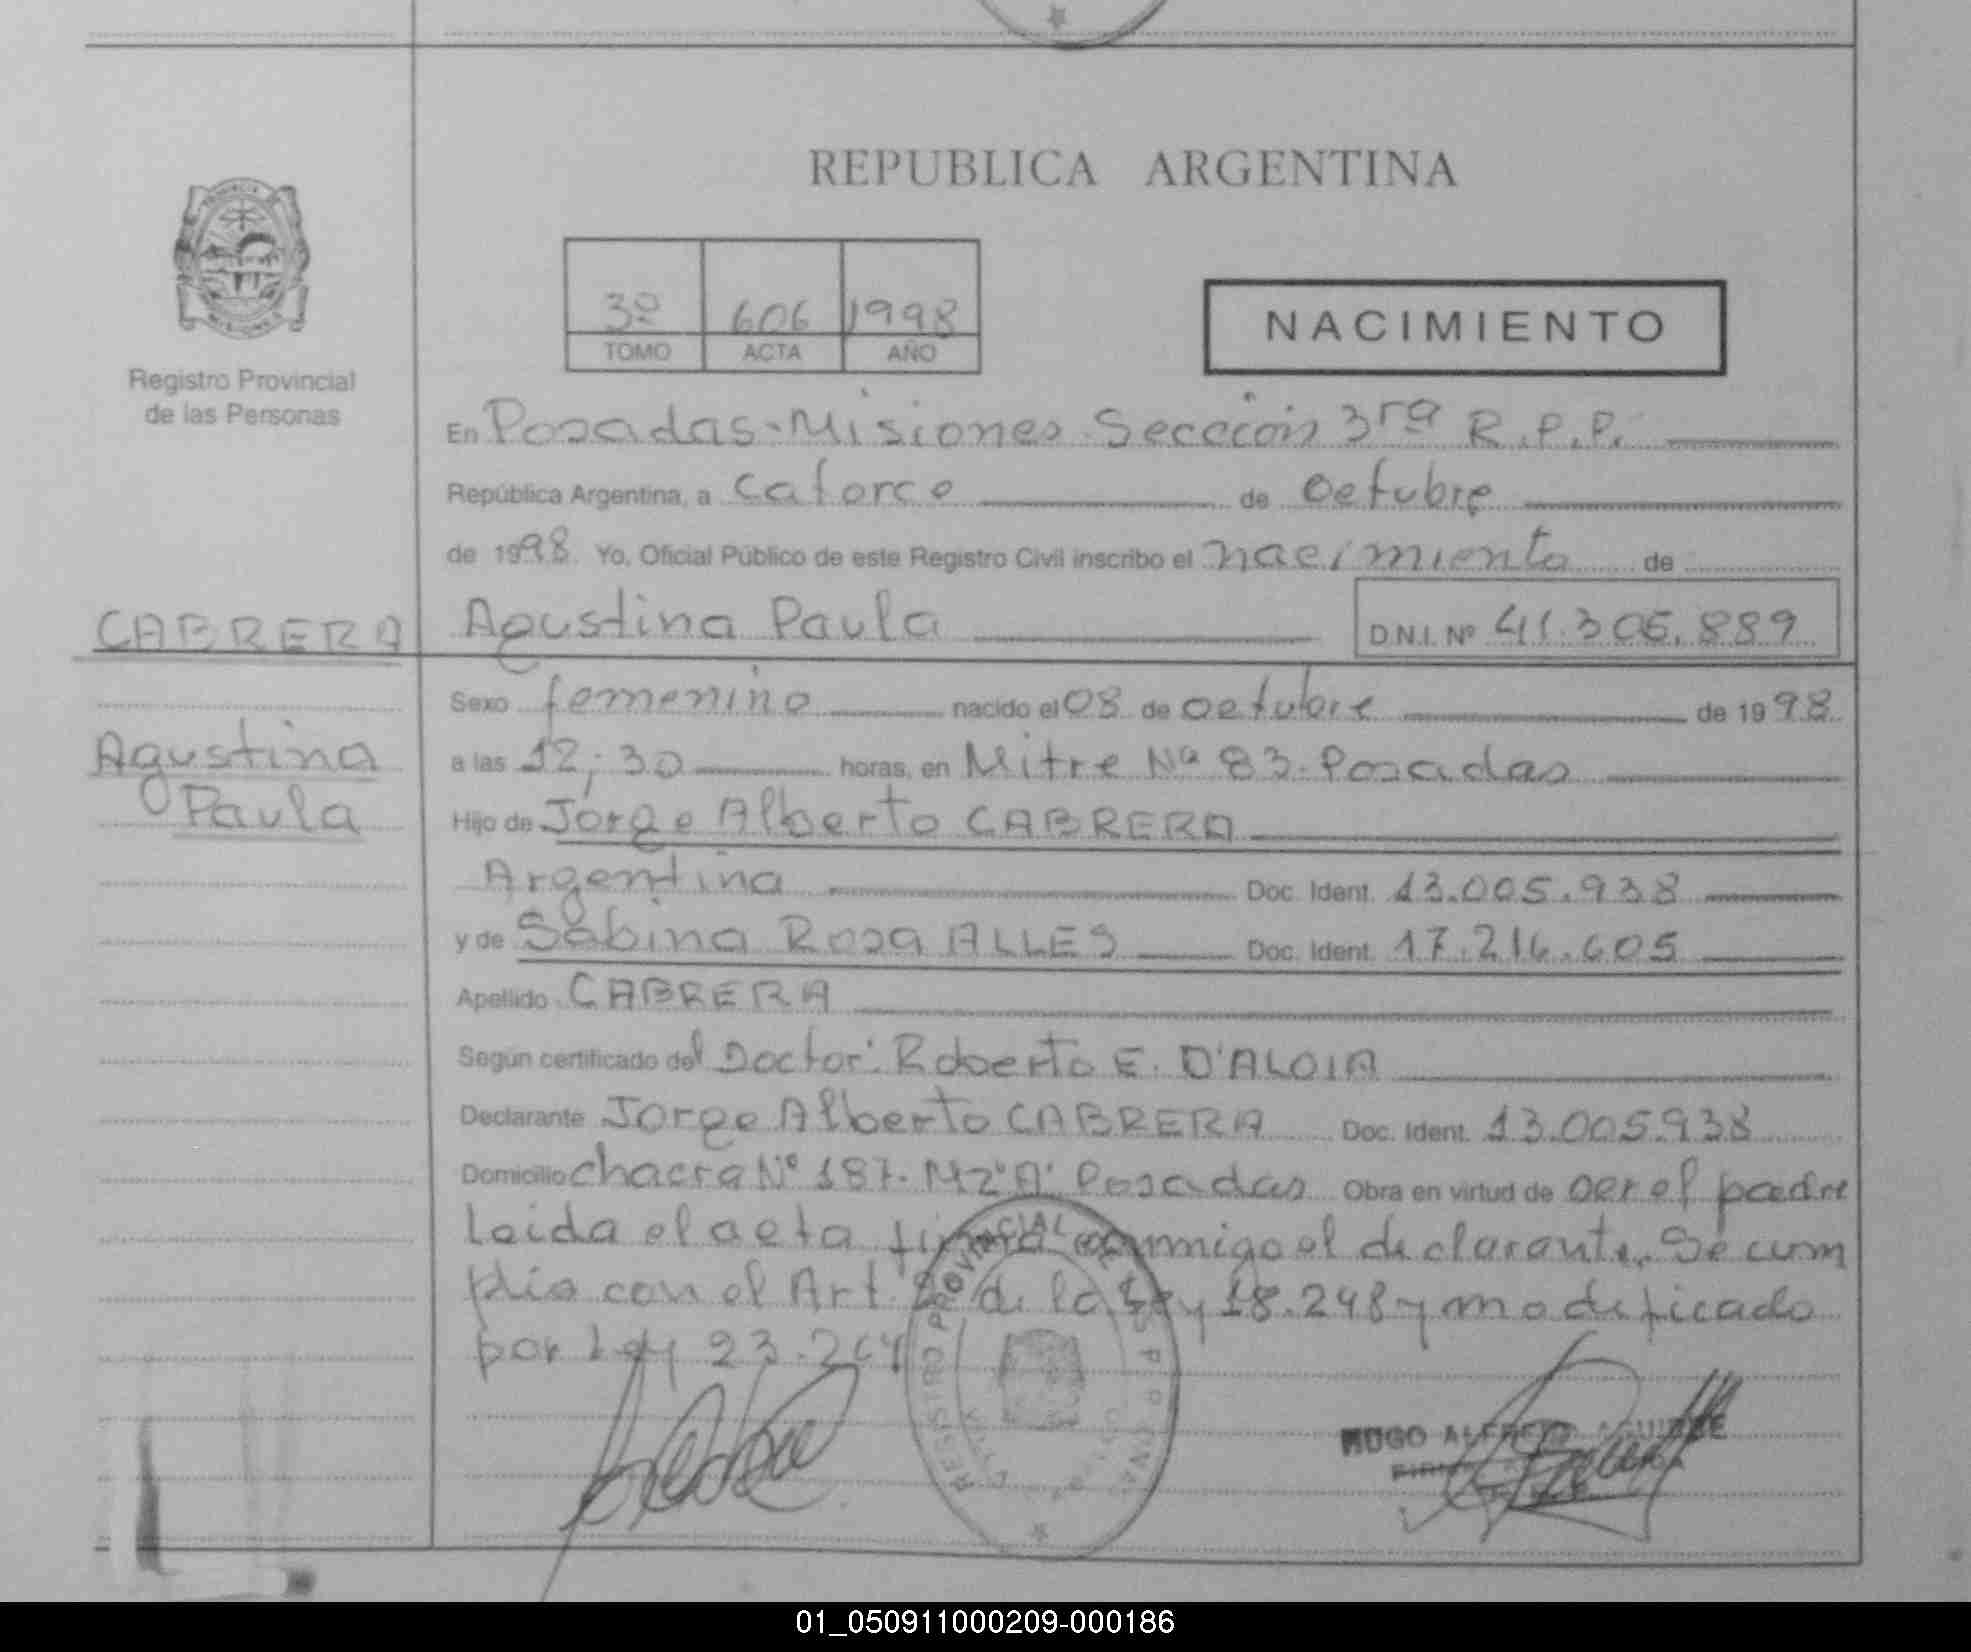 REPUBLICA ARGENTINA
3º 606 1998
TOMO ACTA AÑO
NACIMIENTO
Registro Provincial
de las Personas
En Posadas-Misiones Sección 3ra R.P.P.
República Argentina, a catorce de octubre
de 1998 Yo, Oficial Público de este Registro Civil inscribo el nacimiento de
CABRERA
Agustina Paula
D.N.I. Nº 41.306.889
Agustina
Paula
Sexo femenino nacido el 08 de octubre de 1998
a las 12;30 horas, en Mitre Nº 83-Posadas
Hijo de Jorge Alberto CABRERA
Argentina Doc. Ident. 13.005.938
y de Sabina Rosa ALLES Doc. Ident. 17.216.605
Apellido CABRERA
Según certificado del Doctor: Roberto E. D'ALOIA
Declarante Jorge Alberto CABRERA Doc. Ident. 13.005.938
Domicilio chacra Nº 187-MZ"A" Posadas Obra en virtud de ser el padre
Leida el acta firma conmigo el declarante. Se cum
plió con el Art. de la Ley 18.248 y modificado
por Ley 23.264
REGISTRO PROVINCIAL DE LAS PERSONAS
HUGO ALFREDO AGUIRRE
01_050911000209-000186